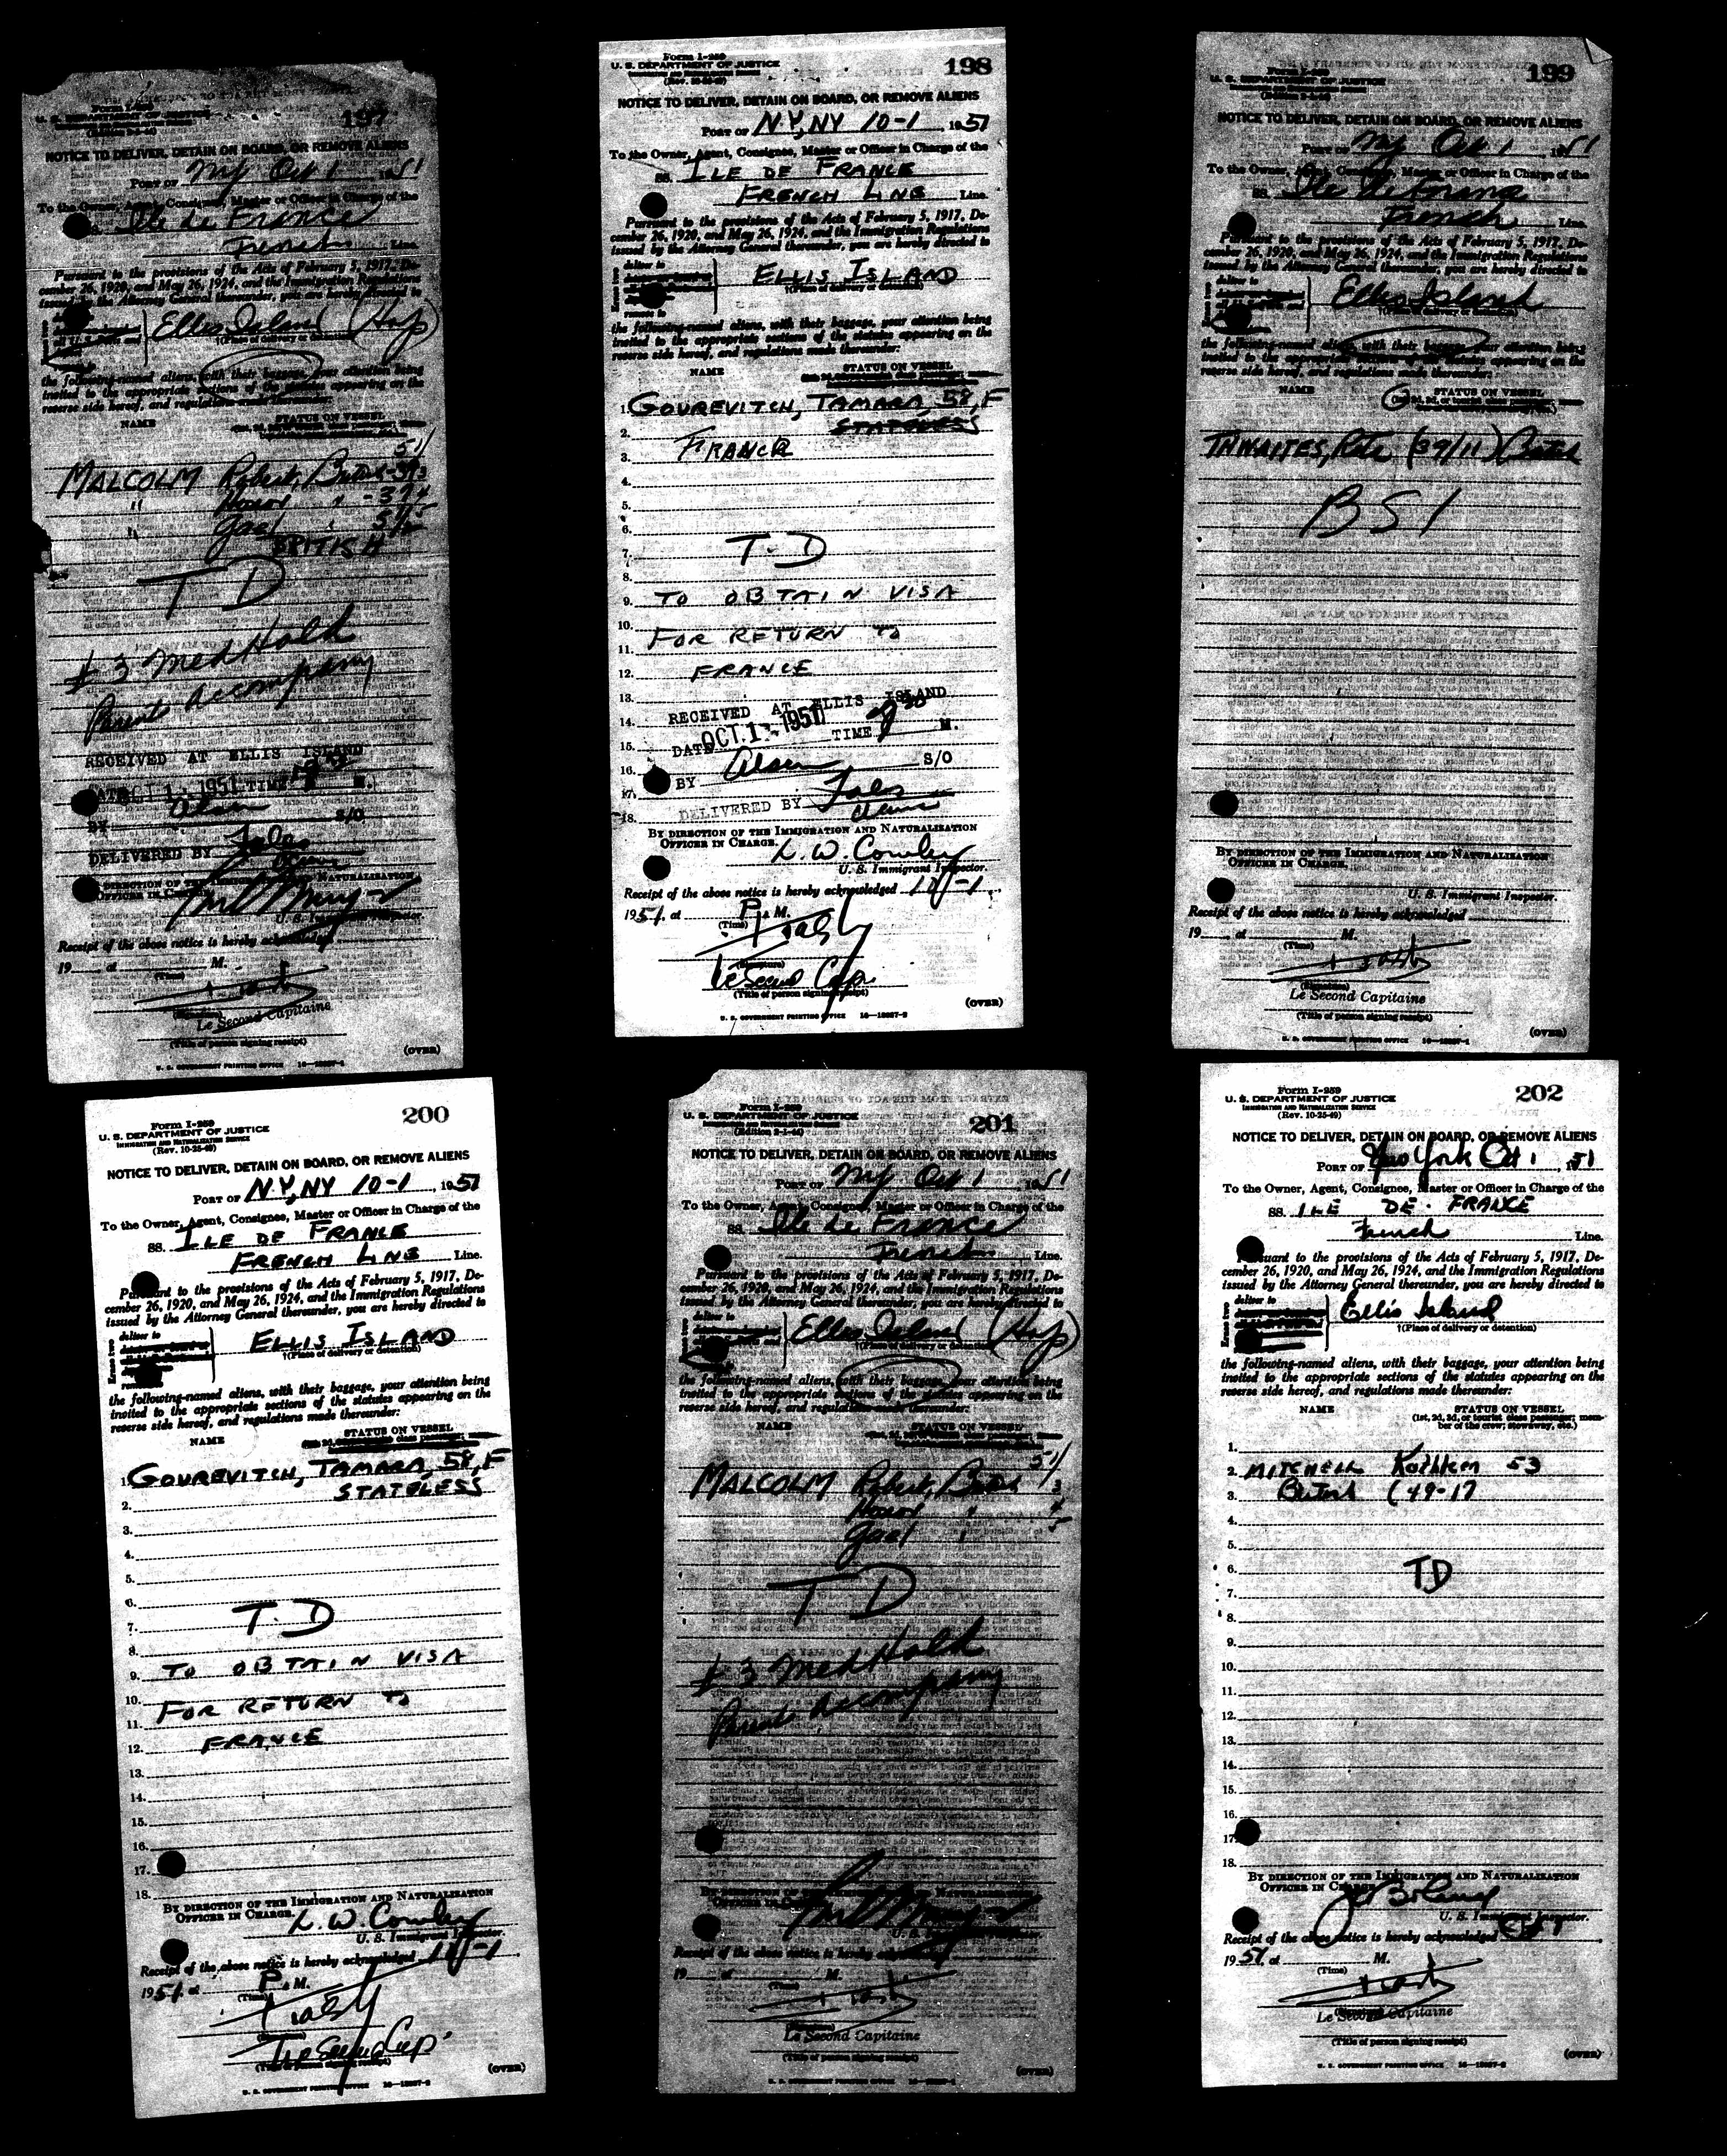 197
Form I-259
U. S. DEPARTMENT OF JUSTICE
NOTICE TO DELIVER, DETAIN ON BOARD, OR REMOVE ALIENS
PORT OF NY Oct 1, 1951
To the Owner, Agent, Consignee, Master or Officer in Charge of the
SS. Ile de France
French Line
Pursuant to the provisions of the Acts of February 5, 1917, De-
cember 26, 1920, and May 26, 1924, and the Immigration Regulations
issued by the Attorney General thereunder, you are hereby directed to
Ellis Island (Hosp)
†(Place of delivery or detention)
the following-named aliens, with their baggage, your attention being
invited to the appropriate sections of the statutes appearing on the
reverse side hereof, and regulations made thereunder:
NAME STATUS ON VESSEL
51/
MALCOLM Robert, 3
" Honor " 4
" Gael " 5
BRITISH
T D
#3 Med Hold
Parents Accompany
RECEIVED AT ELLIS ISLAND
DATE OCT 1 - 1951 TIME M.
BY Olsen S/O
DELIVERED BY
BY DIRECTION OF THE IMMIGRATION AND NATURALIZATION
OFFICER IN CHARGE.
U. S. Immigrant Inspector.
Receipt of the above notice is hereby acknowledged
19 , at M.
(Time)
(Signature)
Le Second Capitaine
(Title of person signing receipt)
(OVER)
U. S. GOVERNMENT PRINTING OFFICE
198
Form I-259
U. S. DEPARTMENT OF JUSTICE
IMMIGRATION AND NATURALIZATION SERVICE
(Rev. 10-25-49)
NOTICE TO DELIVER, DETAIN ON BOARD, OR REMOVE ALIENS
PORT OF N.Y, NY 10-1, 1951
To the Owner, Agent, Consignee, Master or Officer in Charge of the
SS. ILE DE FRANCE
FRENCH LINE Line.
Pursuant to the provisions of the Acts of February 5, 1917, De-
cember 26, 1920, and May 26, 1924, and the Immigration Regulations
issued by the Attorney General thereunder, you are hereby directed to
deliver to
ELLIS ISLAND
†(Place of delivery or detention)
remove to
the following-named aliens, with their baggage, your attention being
invited to the appropriate sections of the statutes appearing on the
reverse side hereof, and regulations made thereunder:
NAME STATUS ON VESSEL
1. GOUREVITCH, TAMARA, 58, F
2. STATELESS
3. FRANCE
4.
5.
6.
7. T. D
8.
9. TO OBTAIN VISA
10.
11. FOR RETURN TO
12. FRANCE
13.
14. RECEIVED AT ELLIS ISLAND
15. DATE OCT 1 - 1951 TIME M.
16. BY Olsen S/O
17.
18. DELIVERED BY
BY DIRECTION OF THE IMMIGRATION AND NATURALIZATION
OFFICER IN CHARGE.
L. W. Cowley
U. S. Immigrant Inspector.
Receipt of the above notice is hereby acknowledged 10-1,
1951, at P. M.
(Time)
(Signature)
Le Second Cap
(Title of person signing receipt)
(OVER)
U. S. GOVERNMENT PRINTING OFFICE
199
Form I-259
U. S. DEPARTMENT OF JUSTICE
NOTICE TO DELIVER, DETAIN ON BOARD, OR REMOVE ALIENS
PORT OF NY Oct 1, 1951
To the Owner, Agent, Consignee, Master or Officer in Charge of the
SS. Ile de France
French Line
Pursuant to the provisions of the Acts of February 5, 1917, De-
cember 26, 1920, and May 26, 1924, and the Immigration Regulations
issued by the Attorney General thereunder, you are hereby directed to
Ellis Island
†(Place of delivery or detention)
the following-named aliens, with their baggage, your attention being
invited to the appropriate sections of the statutes appearing on the
reverse side hereof, and regulations made thereunder:
NAME STATUS ON VESSEL
THWAITES, (39/11)
BSI
BY DIRECTION OF THE IMMIGRATION AND NATURALIZATION
OFFICER IN CHARGE.
U. S. Immigrant Inspector.
Receipt of the above notice is hereby acknowledged
19 , at M.
(Time)
(Signature)
Le Second Capitaine
(Title of person signing receipt)
(OVER)
U. S. GOVERNMENT PRINTING OFFICE
200
Form I-259
U. S. DEPARTMENT OF JUSTICE
IMMIGRATION AND NATURALIZATION SERVICE
(Rev. 10-25-49)
NOTICE TO DELIVER, DETAIN ON BOARD, OR REMOVE ALIENS
PORT OF N.Y, NY 10-1, 1951
To the Owner, Agent, Consignee, Master or Officer in Charge of the
SS. ILE DE FRANCE
FRENCH LINE Line.
Pursuant to the provisions of the Acts of February 5, 1917, De-
cember 26, 1920, and May 26, 1924, and the Immigration Regulations
issued by the Attorney General thereunder, you are hereby directed to
deliver to
ELLIS ISLAND
†(Place of delivery or detention)
the following-named aliens, with their baggage, your attention being
invited to the appropriate sections of the statutes appearing on the
reverse side hereof, and regulations made thereunder:
NAME STATUS ON VESSEL
1. GOUREVITCH, TAMARA, 58, F
2. STATELESS
3.
4.
5.
6.
7. T. D
8.
9. TO OBTAIN VISA
10.
11. FOR RETURN TO
12. FRANCE
13.
14.
15.
16.
17.
18.
BY DIRECTION OF THE IMMIGRATION AND NATURALIZATION
OFFICER IN CHARGE.
L. W. Cowley
U. S. Immigrant Inspector.
Receipt of the above notice is hereby acknowledged 10-1,
1951, at P. M.
(Time)
(Signature)
(Title of person signing receipt)
(OVER)
U. S. GOVERNMENT PRINTING OFFICE
201
Form I-259
U. S. DEPARTMENT OF JUSTICE
NOTICE TO DELIVER, DETAIN ON BOARD, OR REMOVE ALIENS
PORT OF NY Oct 1 1951
To the Owner, Agent, Consignee, Master or Officer in Charge of the
SS. Ile de France
French Line
Pursuant to the provisions of the Acts of February 5, 1917, De-
cember 26, 1920, and May 26, 1924, and the Immigration Regulations
issued by the Attorney General thereunder, you are hereby directed to
Ellis Island (Hosp)
†(Place of delivery or detention)
the following-named aliens, with their baggage, your attention being
invited to the appropriate sections of the statutes appearing on the
reverse side hereof, and regulations made thereunder:
NAME STATUS ON VESSEL
51/
MALCOLM Robert, 3
Honor " 4
Gael " 5
T D
#3 Med Hold
Parents Accompany
BY DIRECTION OF THE IMMIGRATION AND NATURALIZATION
OFFICER IN CHARGE.
Receipt of the above notice is hereby acknowledged
19 , at M.
(Time)
(Signature)
Le Second Capitaine
(Title of person signing receipt)
(OVER)
U. S. GOVERNMENT PRINTING OFFICE
202
Form I-259
U. S. DEPARTMENT OF JUSTICE
IMMIGRATION AND NATURALIZATION SERVICE
(Rev. 10-25-49)
NOTICE TO DELIVER, DETAIN ON BOARD, OR REMOVE ALIENS
PORT OF New York Oct 1, 1951
To the Owner, Agent, Consignee, Master or Officer in Charge of the
SS. ILE DE FRANCE
French Line.
Pursuant to the provisions of the Acts of February 5, 1917, De-
cember 26, 1920, and May 26, 1924, and the Immigration Regulations
issued by the Attorney General thereunder, you are hereby directed to
deliver to
Ellis Island
†(Place of delivery or detention)
the following-named aliens, with their baggage, your attention being
invited to the appropriate sections of the statutes appearing on the
reverse side hereof, and regulations made thereunder:
NAME STATUS ON VESSEL
(1st, 2d, 3d, or tourist class passenger; mem-
ber of the crew; stowaway, etc.)
1.
2. MITCHELL 53
3. (49-17
4.
5.
6. TD
7.
8.
9.
10.
11.
12.
13.
14.
15.
16.
17.
18.
BY DIRECTION OF THE IMMIGRATION AND NATURALIZATION
OFFICER IN CHARGE.
U. S. Immigrant Inspector.
Receipt of the above notice is hereby acknowledged
1951, at M.
(Time)
(Signature)
Le Second Capitaine
(Title of person signing receipt)
(OVER)
U. S. GOVERNMENT PRINTING OFFICE